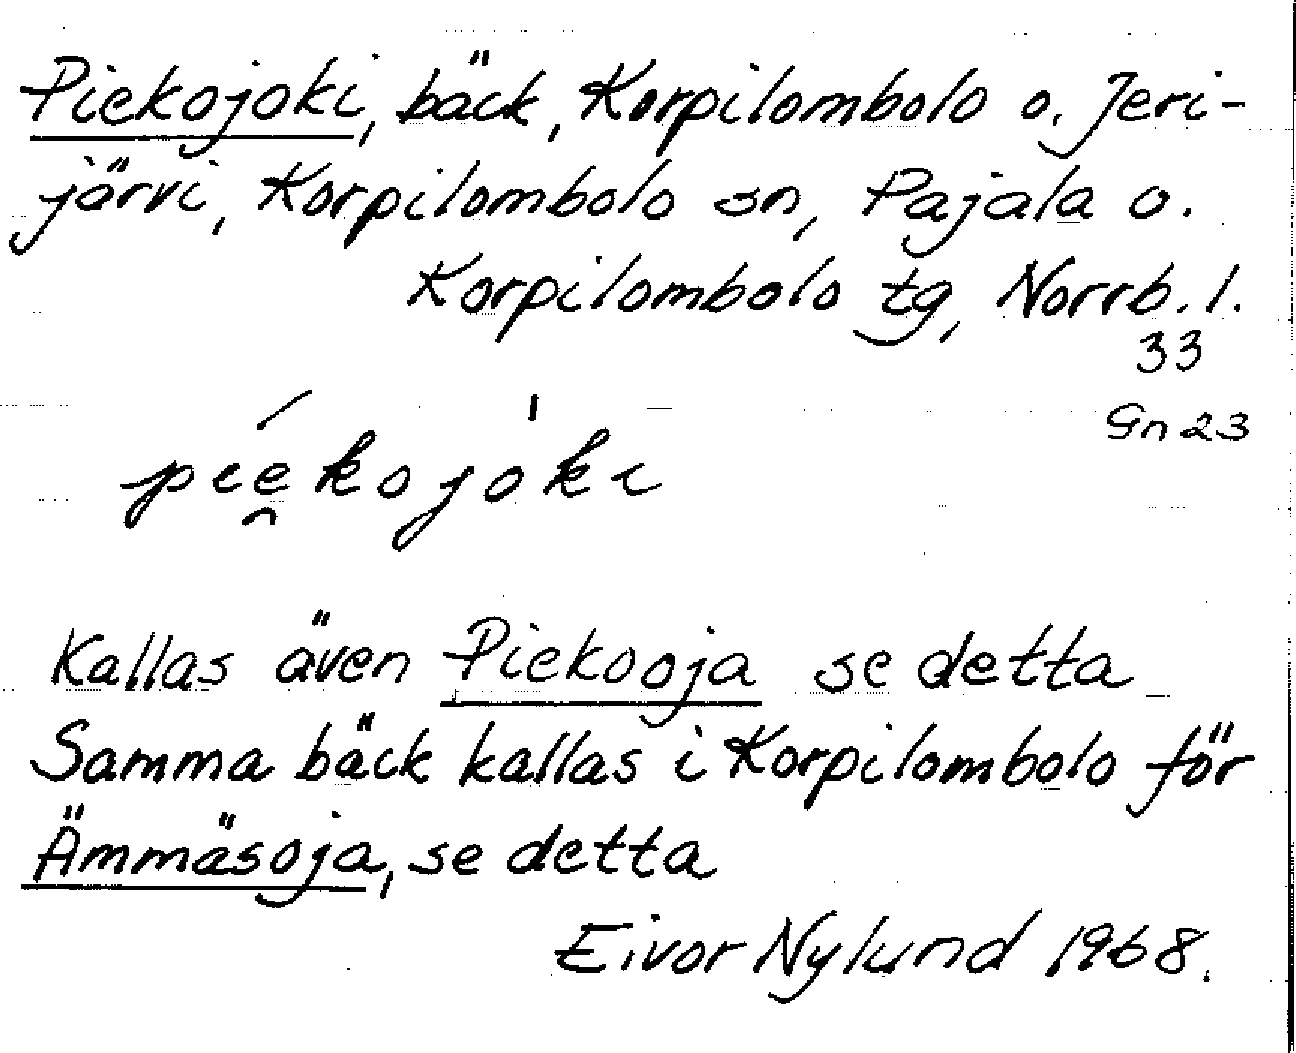 Piekojoki, bäck, Korpilombolo o. Jeri-
järvi, Korpilombolo sn, Pajala o.
Korpilombolo tg, Norrb. l.
33
Gn 23
pie̯kojoki
Kallas även Piekooja se detta
Samma bäck kallas i Korpilombolo för
Ämmäsoja, se detta
Eivor Nylund 1968.